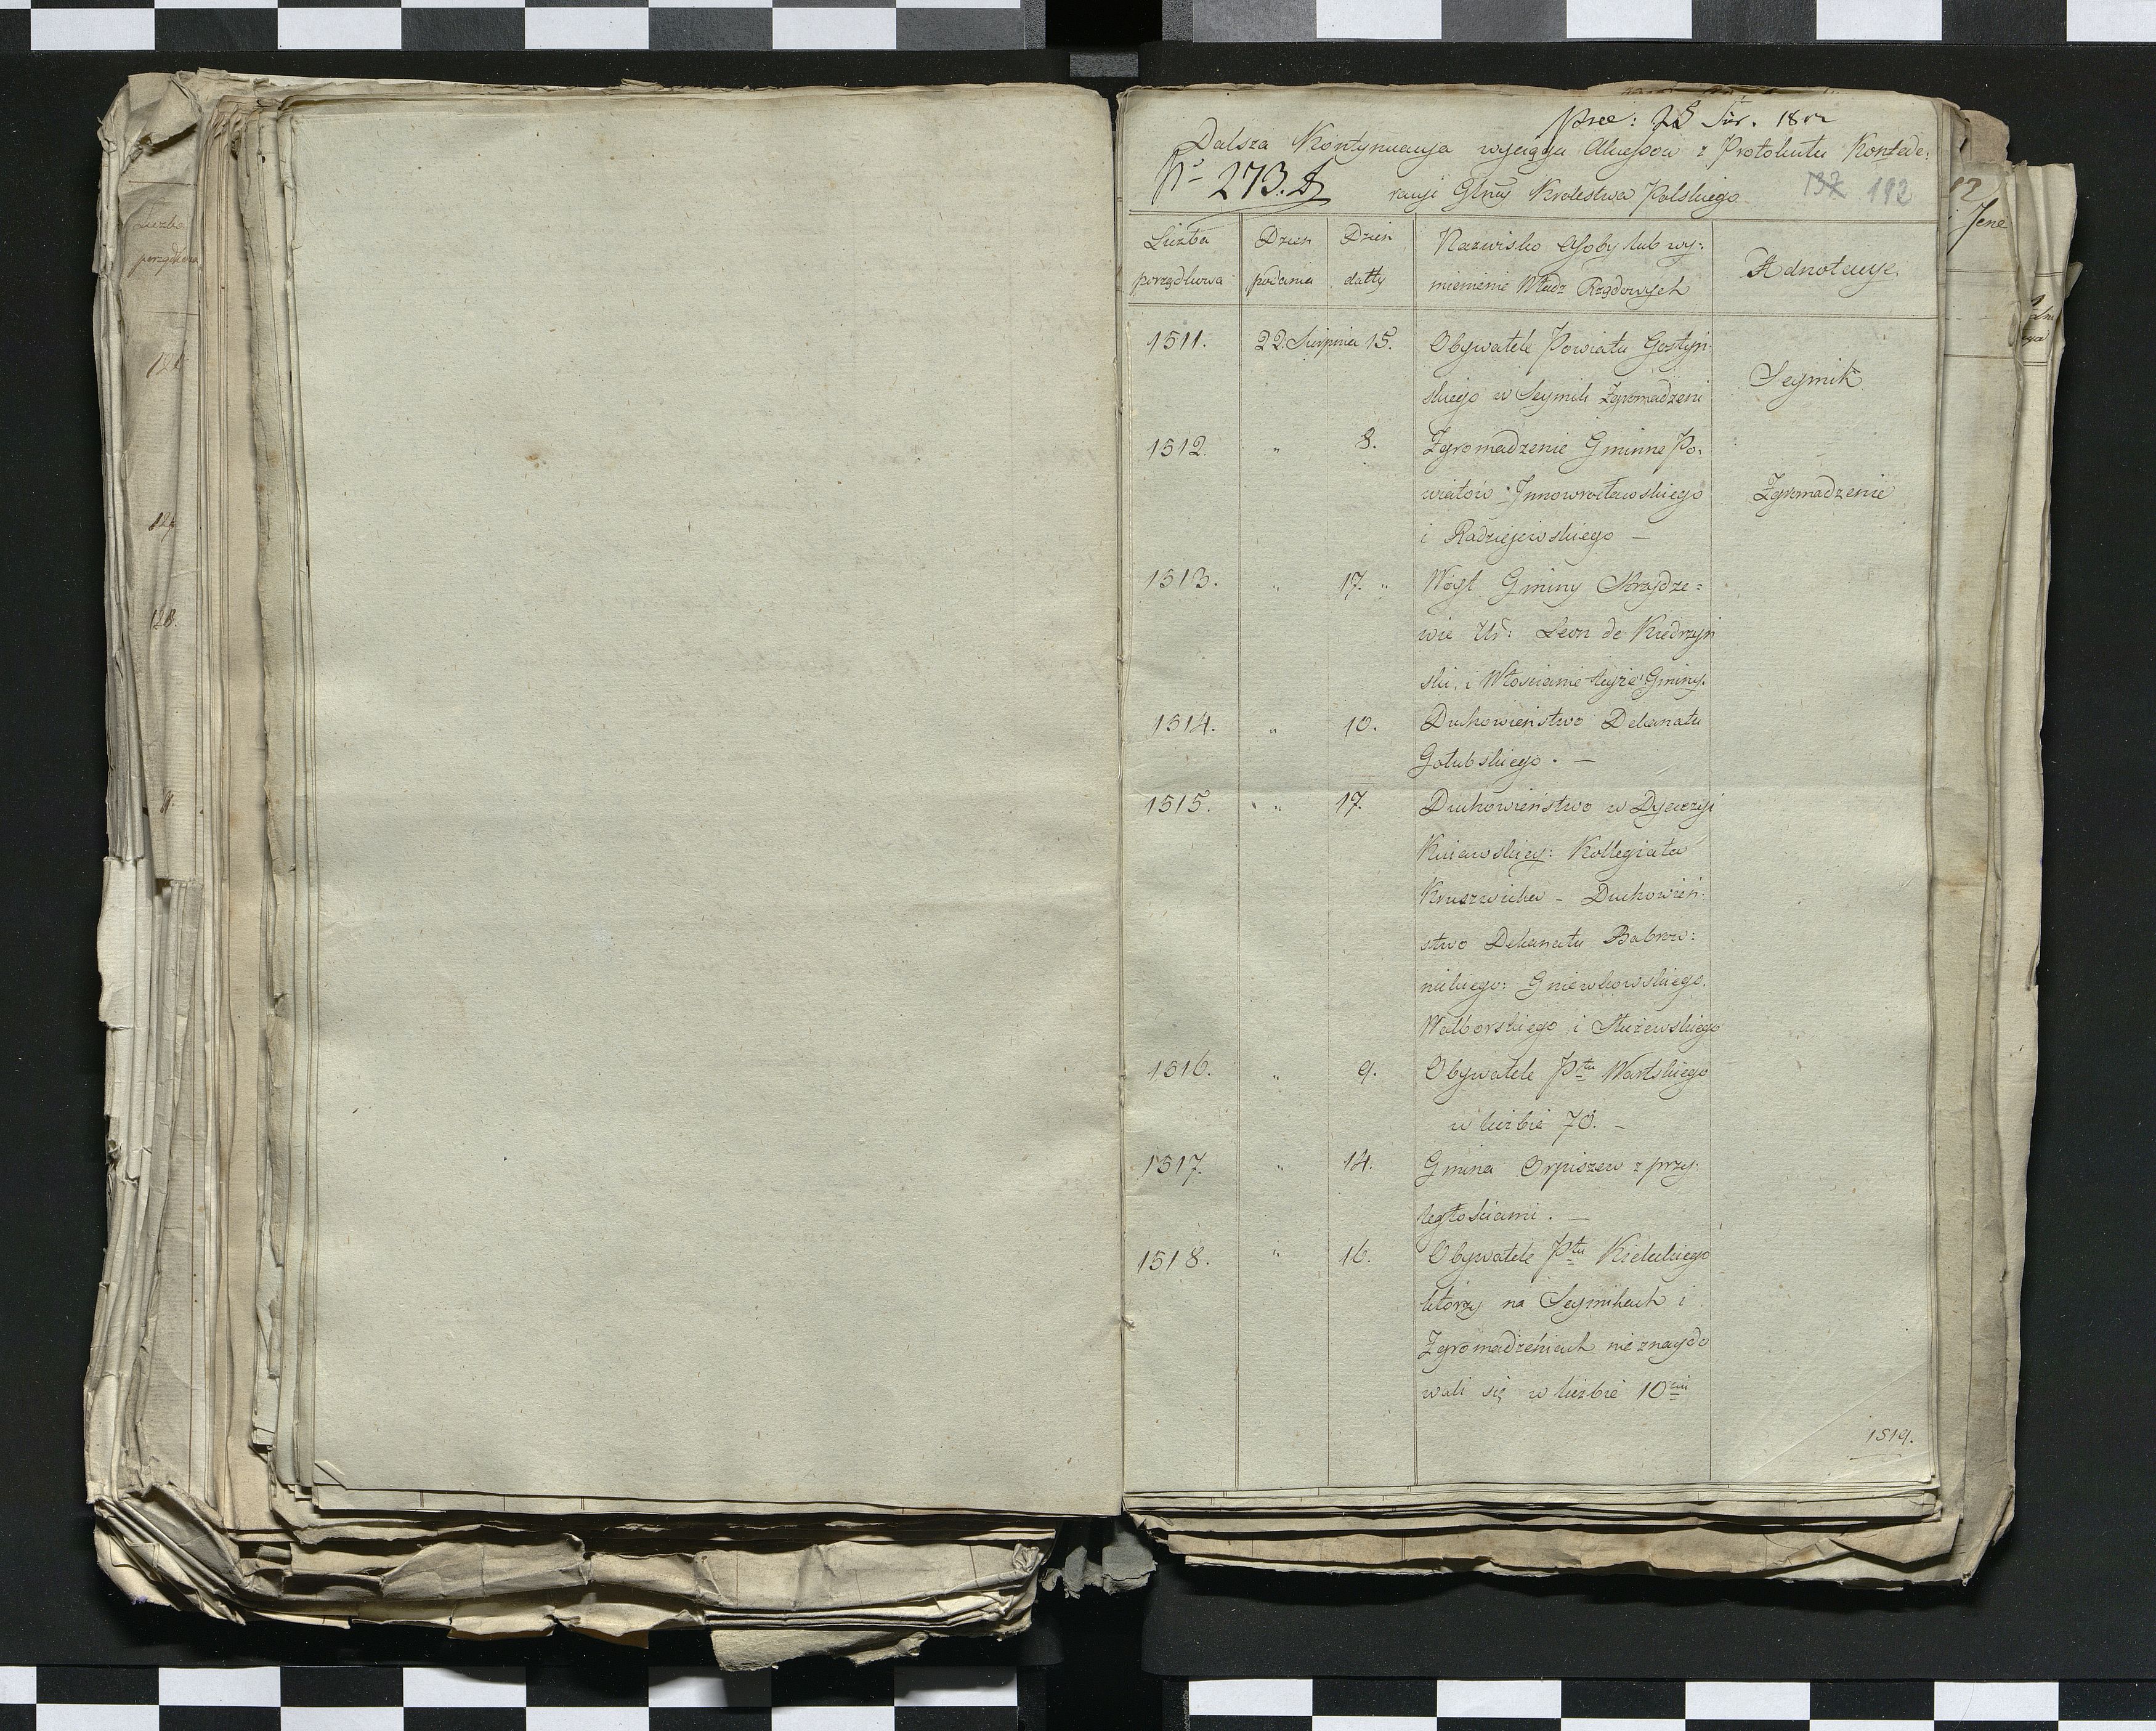 Dalsza Kontynuacya wyciągu Akcessow z Protokułu Konfede:
No 273.
racyi Glney Krolestwa Polskiego
137 192
Liczba porządkowa
Dzien podania
Dzień datty
Nazwisko Osoby lub wy:
mienienie Władz Rządowych
Adnotacye.
1511. 22. Sierpnia 15. Obywatele Powiatu Gostyń:
skiego w Seymik Zgromadzeni
Seymik
1512. " 8. Zgromadzenie Gminne Po:
wiatów Innowrocławskiego
Zgromadzenie
i Radziejewskiego —
1513. " 17. " Wóyt Gminy Strzydze=
wie Ur: Leon de Kiedrzyń
ski, i Włościanie teyże Gminy.
1514. " 10. Duchowieństwo Dekanatu
Gołubskiego. —
1515. " 17. Duchowieństwo w Dyecezyi
Kuiawskiey: Kollegiata
Kruszwicka - Duchowień:
stwo Dekanatu Bobrow:
nickiego: Gniewkowskiego.
Wolborskiego i Służewskiego
1516. " 9. Obywatele Ptu Wartskiego
w liczbie 70. -
1517. " 14. Gmina Orpiszew z przy:
ległościami. —
1518. " 16. Obywatele Ptu Kieleckiego
którzy na Seymikach i
Zgromadzeniach nie znaydo
wali się w liczbie 10ciu
1519.